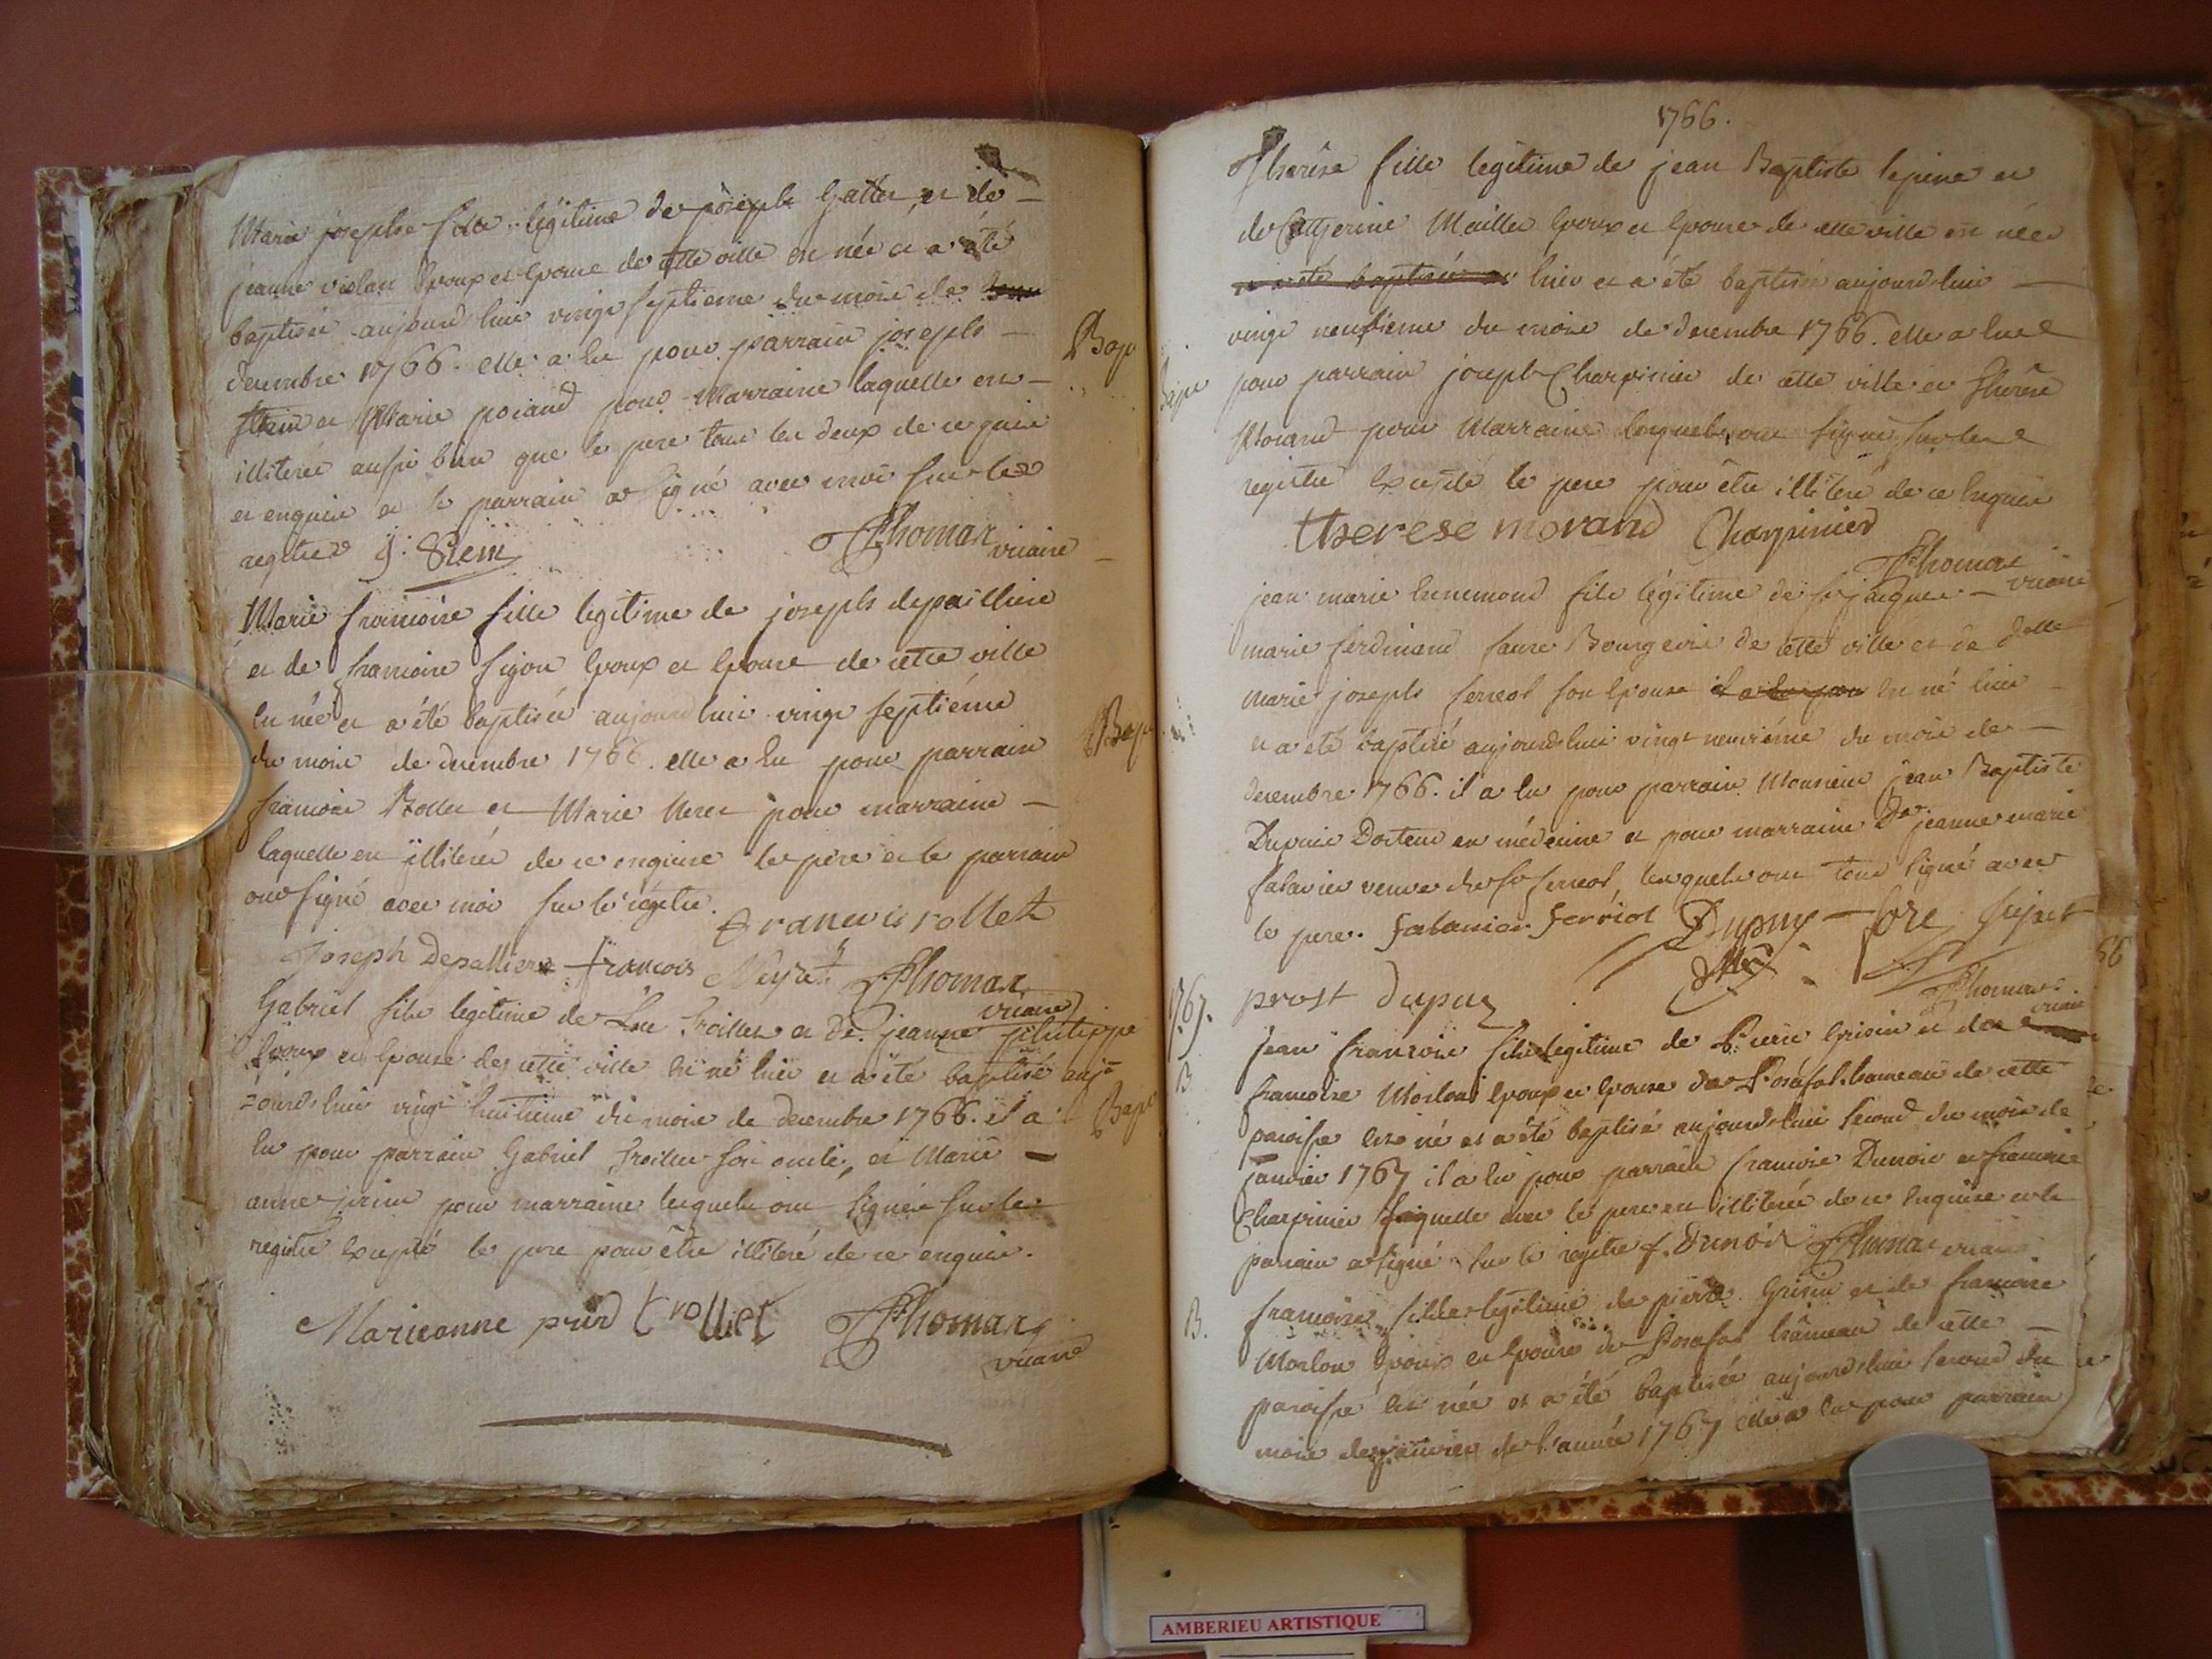 Marie josephe fille légitime de joseph Gallet et de
jeanne violan Epoux et Epouse de cette ville est née et a été
baptisée aujourd'hui vingt septieme du mois de
decembre 1766. elle a eu pour parrain joseph
et Marie poiand pour Marraine laquelle est
illiterée aussi bien que le pere tous les deux de ce
et enquis et le parrain a signé avec moi sur le
registre J: Stem Thomas vicaire
Bap
Marie françoise fille legitime de joseph depailliere
et de françoise figon Epoux et Epouse de cette ville
est née et a été baptisée aujourd'hui vingt septiéme
du mois de decembre 1766. elle a eu pour parrain
françois Rollet et Marie pour marraine
laquelle est illiterée de ce enquise le pere et le parrain
ont signé avec moi sur le régitre.
francois rollet
Joseph Depalliere francois Neyret Thomas
vicaire
Bap
Gabriel fils legitime de Luc Trollier et de jeanne philippe
Epoux et Epouse de cette ville est né hier et a été baptisé auj=
=ourd'hui vingt huitieme du mois de decembre 1766. il a
eu pour parrain Gabriel Trollier son oncle, et Marie
anne prin pour marraine lesquels ont signés sur le
registre excepté le pere pour être illiteré de ce enquis.
Bap
Marieanne prin trolliet Thomas
vicaire
1766.
Therése fille legitime de jean Baptiste lepine et
de Catherine Maillet Epoux et Epouse de cette ville est née
et a été baptisée hier et a été baptisée aujourd'hui
vingt neufieme du mois de decembre 1766. elle a eue
Bapt pour parrain joseph Charpinier de cette ville et Therése
Morand pour Marraine lesquels ont signé sur le
registre excepté le pere pour être illiteré de ce enquis
therese morand Charpinier
Thomas
vicaire
jean marie Ennemond fils légitime de Sr jacques
marie ferdinand faure Bourgeois de cette ville et de delle
Marie joseph ferreol son Epouse il a eu pour est né hier
et a été baptisé aujourd'hui vingt neuviéme du mois de
decembre 1766. il a eu pour parrain Monsieur jean Baptiste
Dupuis Docteur en médecine et pour marraine De jeanne marie
falavier veuve du Sr ferreol, lesquels ont tous signé avec
le pere. falavier ferriol Dupuy fore
1767. prost dupuy
Thomas
vicaire
B. jean françois fils legitime de Pierre Grisin et de
francoise Morlon Epoux et Epouse de hameau de cette
paroisse est né et a été baptisé aujourd'hui second du mois de
janvier 1767 il a eu pour parrain francois Dunois et francoise
Charpinier laquelle avec le pere est illiterée de ce enquise et le
parrain a signé sur le registre f. Dunois Thomas vicaire
B. francoise fille legitime de pierre Grisin et de francoise
Morlon Epoux et Epouse de hameau de cette
paroisse est née et a été baptisée aujourd'hui second du
mois de janvier de l'année 1767 elle a eu pour parrain
AMBERIEU ARTISTIQUE